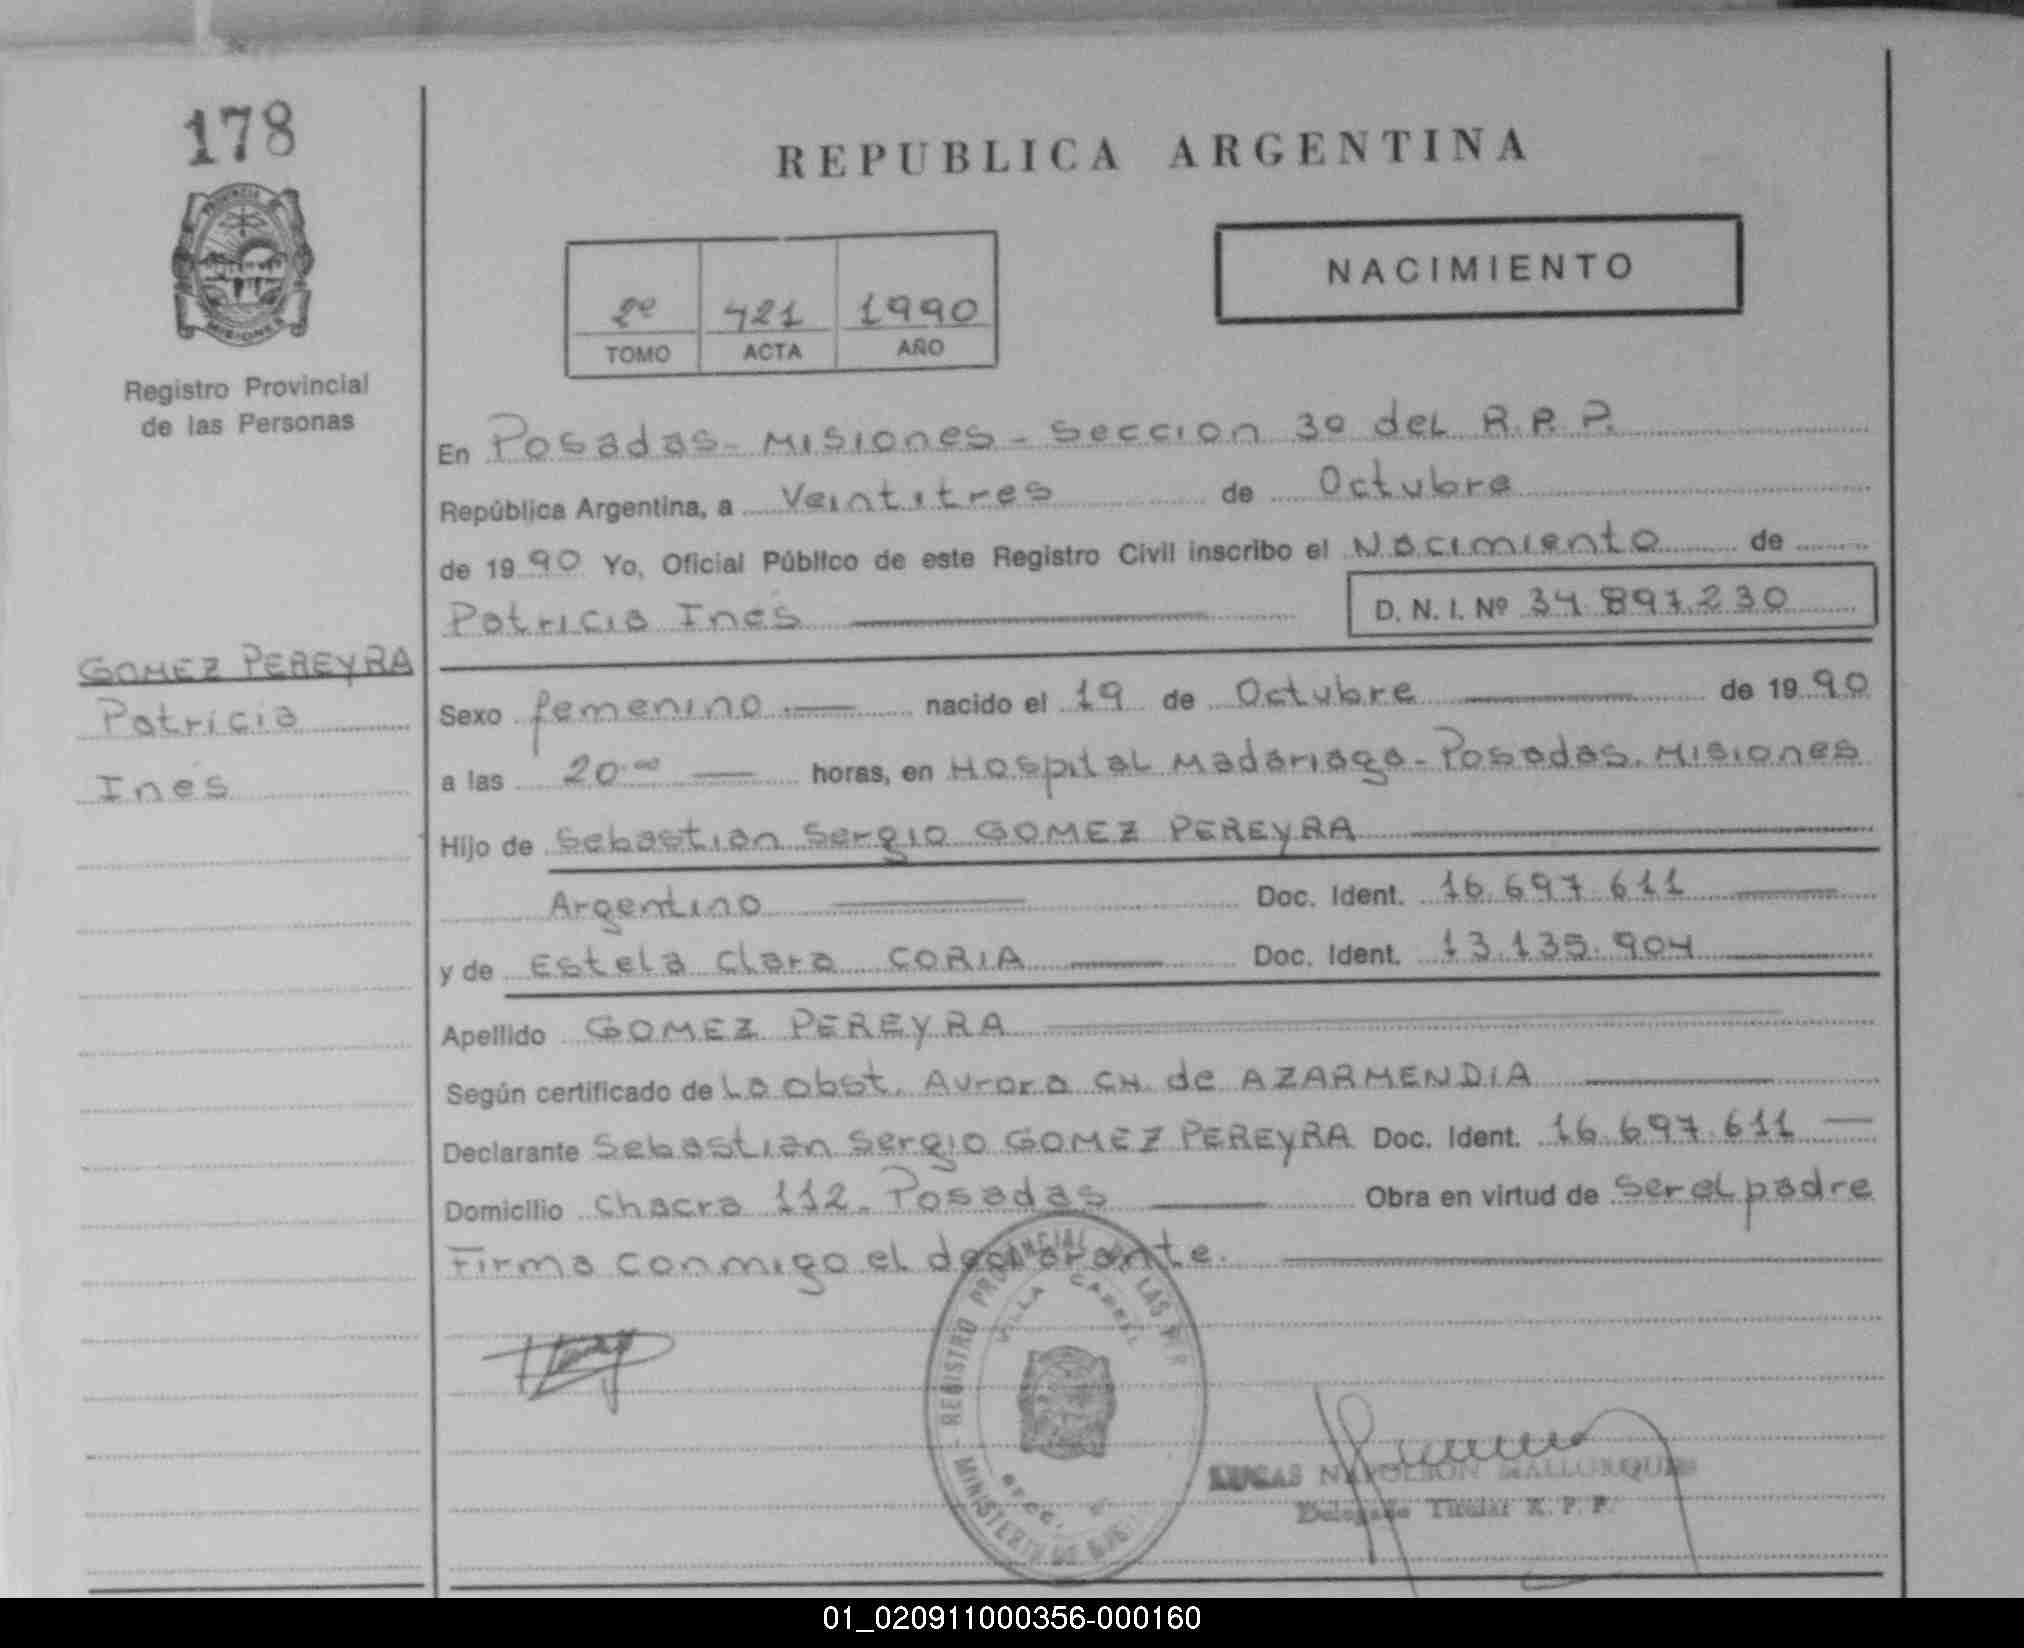 178
REPUBLICA ARGENTINA
PROVINCIA
MISIONES
NACIMIENTO
2º 421 1990
TOMO ACTA AÑO
Registro Provincial
de las Personas
En Posadas - Misiones - Seccion 3º del R.P.P.
República Argentina, a Veintitres de Octubre
de 1990 Yo, Oficial Público de este Registro Civil inscribo el Nacimiento de
Patricia Inés D. N. I. Nº 34.897.230
GOMEZ PEREYRA
Patricia
Inés
Sexo femenino nacido el 19 de Octubre de 1990
a las 20.00 horas, en Hospital Madariaga - Posadas. Misiones
Hijo de Sebastian Sergio GOMEZ PEREYRA
Argentino Doc. Ident. 16.697.611
y de Estela Clara CORIA Doc. Ident. 13.135.904
Apellido GOMEZ PEREYRA
Según certificado de La obst. Aurora CH. de AZARMENDIA
Declarante Sebastian Sergio GOMEZ PEREYRA Doc. Ident. 16.697.611
Domicilio Chacra 112. Posadas Obra en virtud de ser el padre
Firma conmigo el declarante.
REGISTRO PROVINCIAL DE LAS
VILLA CABRAL
SECC.
MINISTERIO DE
LUCAS NAPOLEON MALLORQUIN
Delegado Titular R. P. P.
01_020911000356-000160